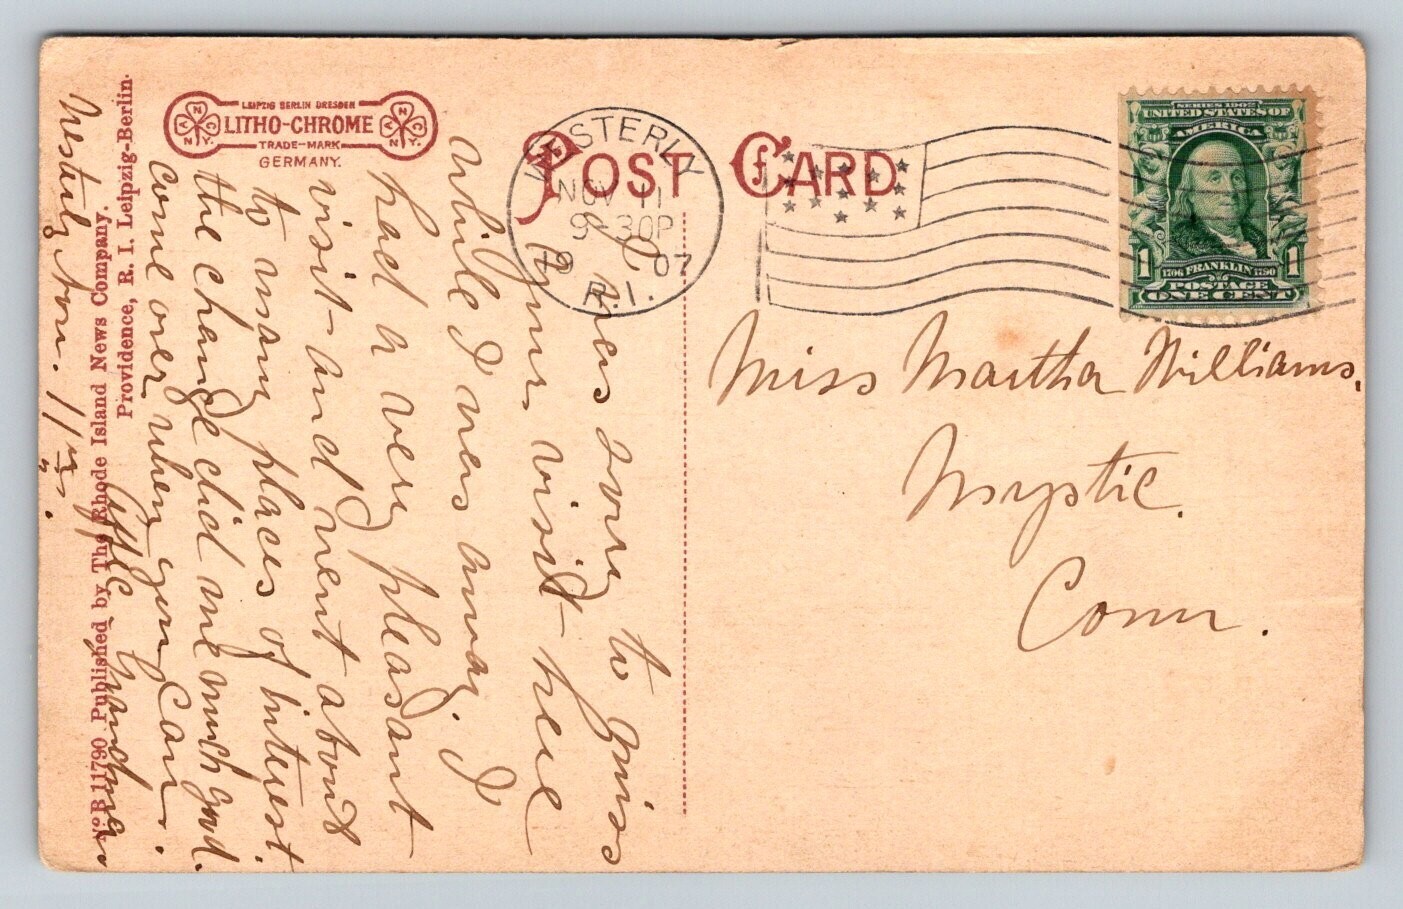 LEIPZIG BERLIN DRESDEN
LITHO-CHROME
TRADE-MARK
GERMANY.
N
V
C
N.Y.
N
V
C
N.Y.
POST CARD
WESTERLY
NOV 11
9-30P
19 07
R.I.
SERIES 1902
UNITED STATES OF
AMERICA
1 1
1706 FRANKLIN 1790
POSTAGE
ONE CENT
Miss Martha Williams.
Mystic.
Conn.
I was sorry to miss
your visit here
while I was away. I
had a very pleasant
visit and went about
to many places of interest.
the change did me much good.
come over when you can.
Aff'c Grandma
Westerly Nov. 11/07.
No. B 11790 Published by The Rhode Island News Company.
Providence, R. I. Leipzig-Berlin.